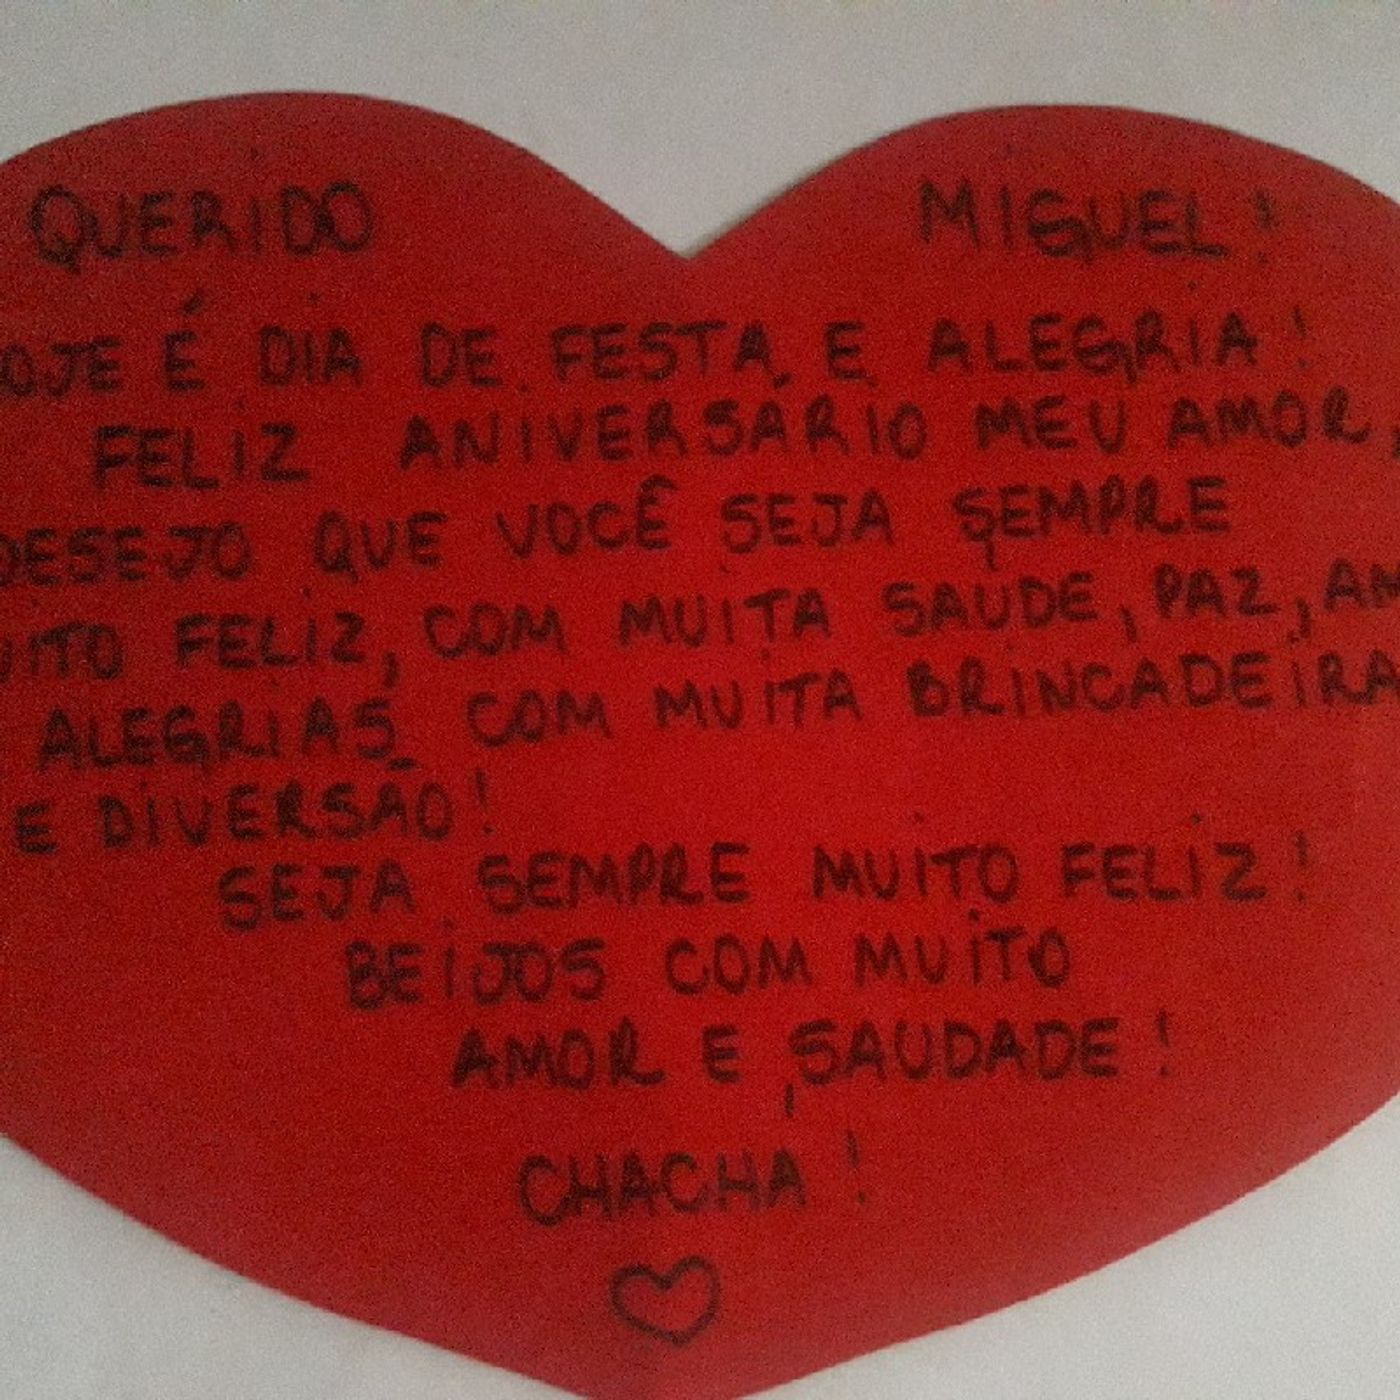 QUERIDO MIGUEL!
OJE É DIA DE FESTA E ALEGRIA!
FELIZ ANIVERSÁRIO MEU AMOR,
DESEJO QUE VOCÊ SEJA SEMPRE
UITO FELIZ, COM MUITA SAÚDE, PAZ, AM
ALEGRIAS COM MUITA BRINCADEIRA
E DIVERSÃO!
SEJA SEMPRE MUITO FELIZ!
BEIJOS COM MUITO
AMOR E SAUDADE!
CHACHA!